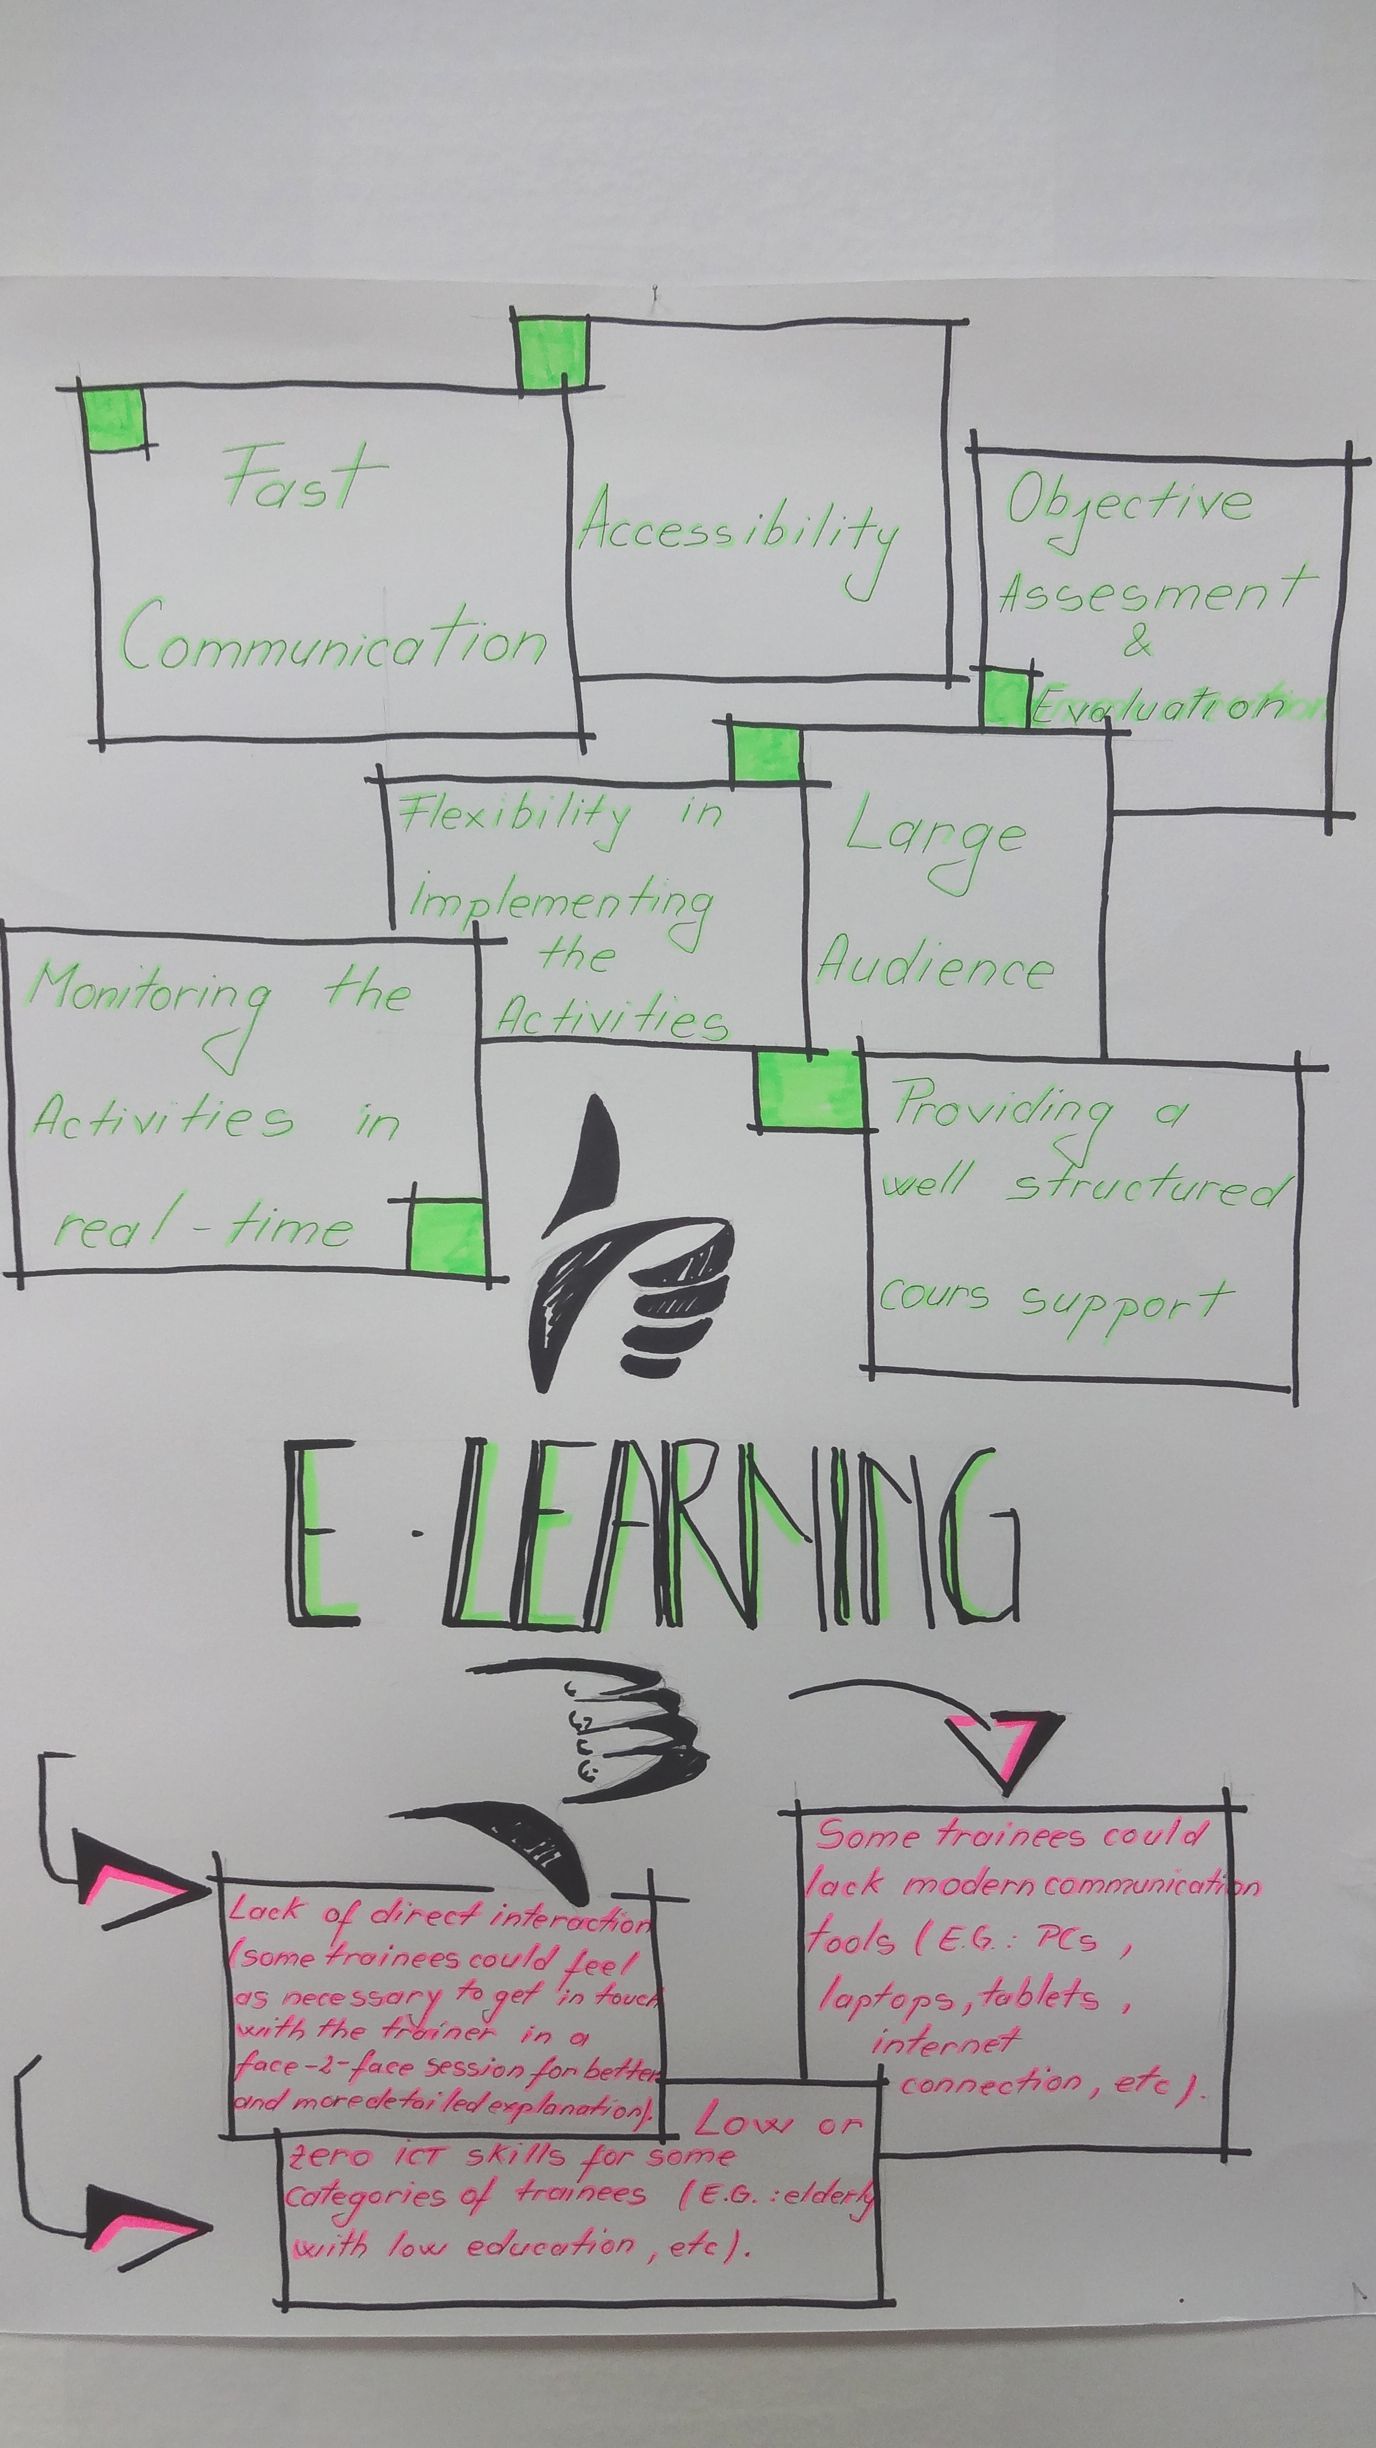 Fast
Communication
Accessibility
Objective
Assesment
&
Evaluation
Flexibility in
implementing
the
Activities
Large
Audience
Monitoring the
Activities in
real-time
Providing a
well structured
cours support
E-LEARNING
Some trainees could
lack modern communication
tools (E.G.: PCs,
laptops, tablets,
internet
connection, etc).
Lack of direct interaction
(some trainees could feel
as necessary to get in touch
with the trainer in a
face-2-face session for better
and more detailed explanation).
Low or
zero ICT skills for some
categories of trainees (E.G.: elderly
with low education, etc).